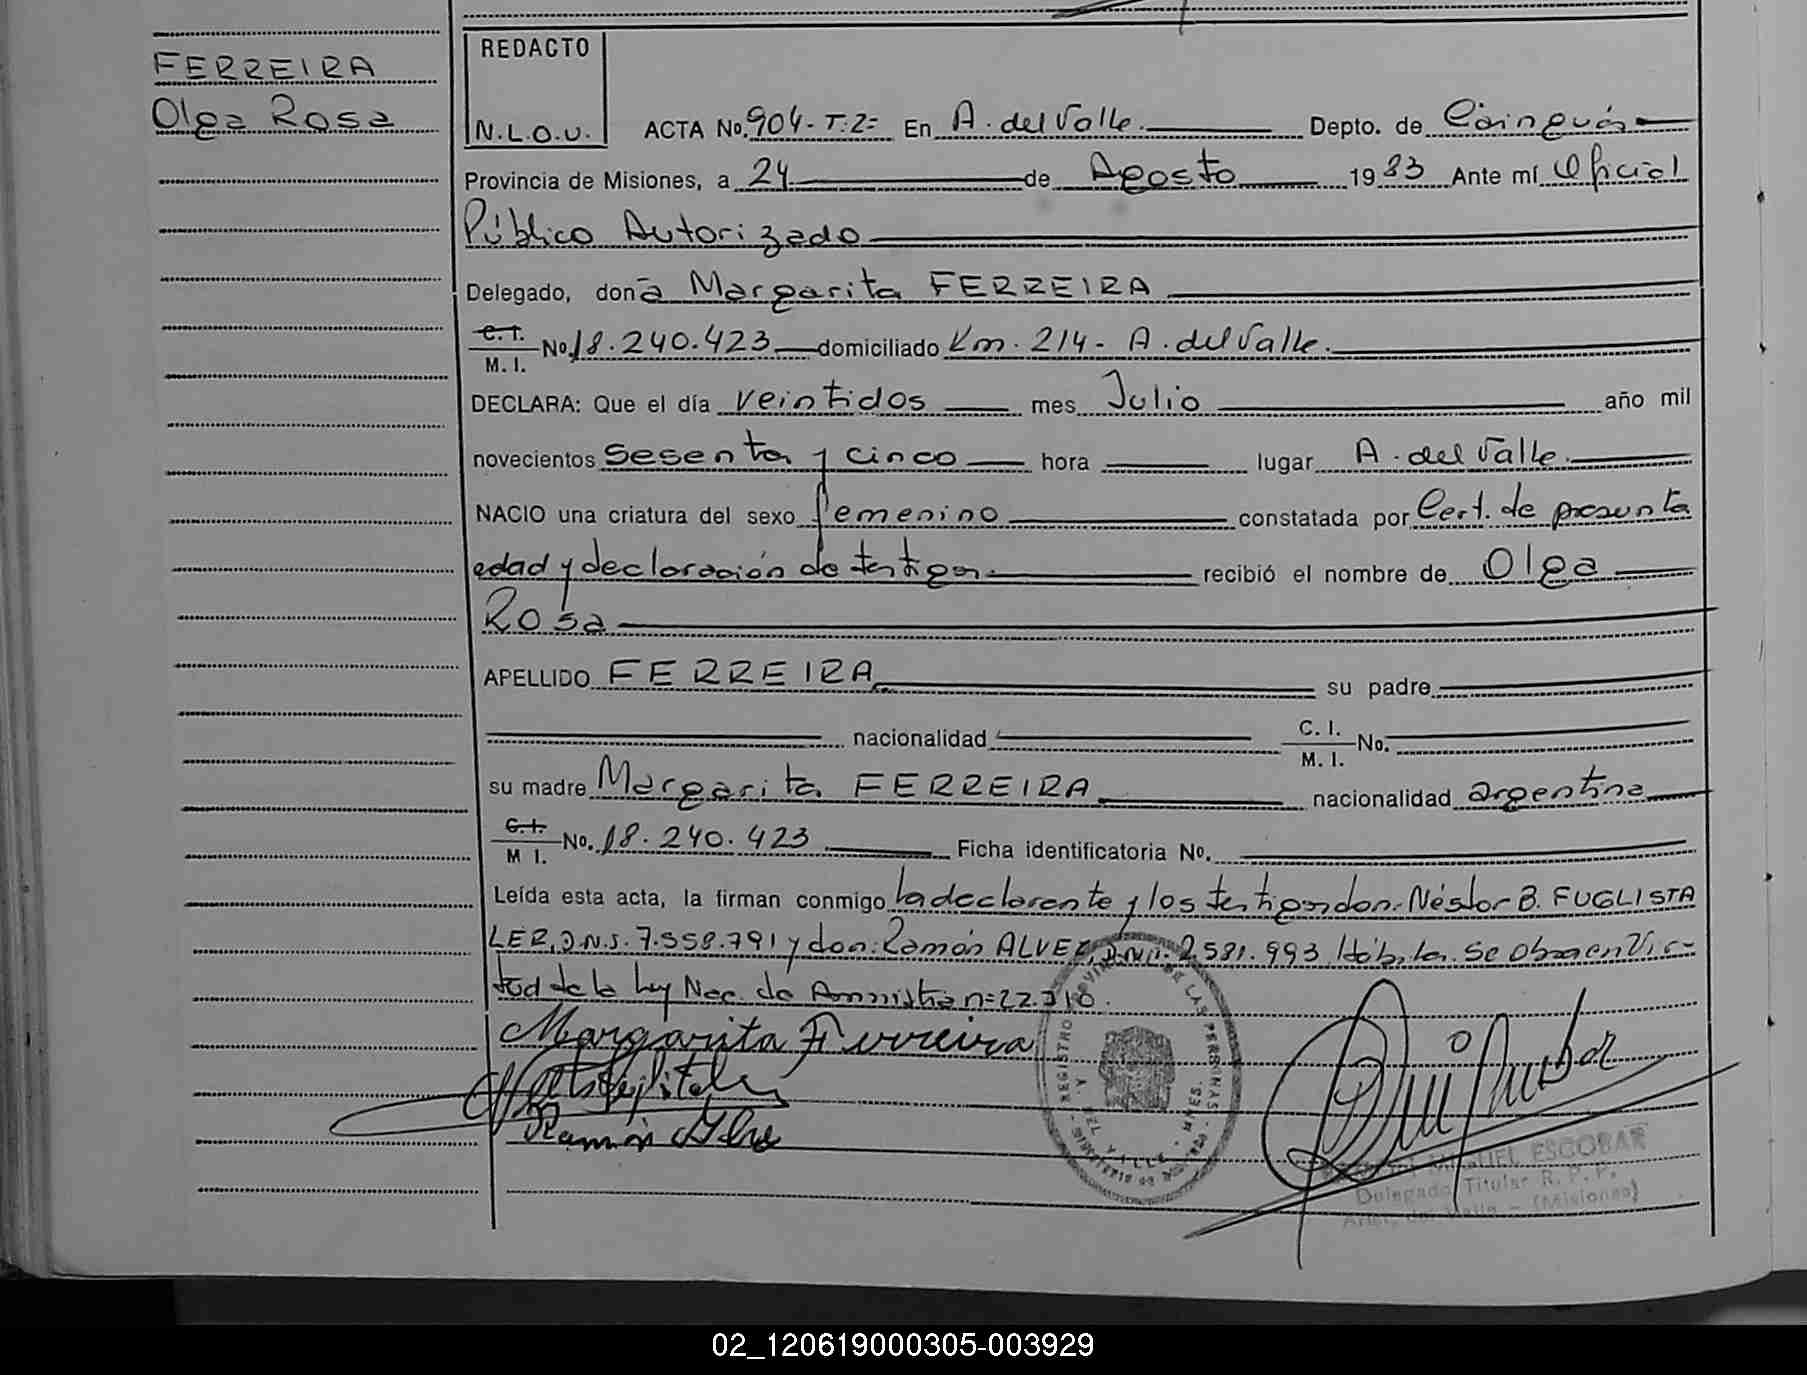 FERREIRA
Olga Rosa
REDACTO
N.L.O.U.
ACTA No. 904-T:2= En A. del Valle. Depto. de Cainguás
Provincia de Misiones, a 24 de Agosto 1983 Ante mí Oficial
Público Autorizado
Delegado, doña Margarita FERREIRA
C. I.
M. I. No. 18.240.423 domiciliado Km. 214- A. del Valle.
DECLARA: Que el día veintidos mes Julio año mil
novecientos sesenta y cinco hora lugar A. del Valle.
NACIO una criatura del sexo femenino constatada por Cert. de presunta
edad y declaración de testigos. recibió el nombre de Olga
Rosa
APELLIDO FERREIRA su padre
nacionalidad C. I.
M. I. No.
su madre Margarita FERREIRA nacionalidad argentina
C. I.
M I. No. 18.240.423 Ficha identificatoria No.
Leída esta acta, la firman conmigo la declarante y los testigos don: Néstor B. FUGLISTA
LER, D.N.I. 7.558.791 y don: Ramón ALVEZ, D.N.I. 2.581.993 Hábiles. Se obra en Vir=
tud de la ley Nac. de Amnistía n=22.
Margarita Ferreira
Ramón
REGISTRO PROVINCIAL DE LAS PERSONAS
DEL VALLE - MNES.
MIGUEL ESCOBAR
Delegado Titular R. P. P.
Arist. del Valle - (Misiones)
02_120619000305-003929